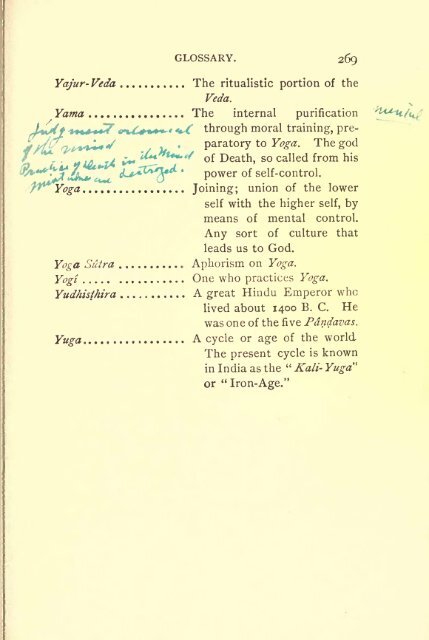 GLOSSARY. 269
Yajur-Veda ........... The ritualistic portion of the
Veda.
Yama ................ The internal purification
mental
through moral training, pre-
Judgment
paratory to Yoga. The god
of the mind
of Death, so called from his
Practice of death in the mind
power of self-control.
destroyed.
Yoga................. Joining; union of the lower
self with the higher self, by
means of mental control.
Any sort of culture that
leads us to God.
Yoga Sûtra ........... Aphorism on Yoga.
Yogî ..... ............ One who practices Yoga.
Yudhisṭhira ........... A great Hindu Emperor who
lived about 1400 B. C. He
was one of the five Pâṇḍavas.
Yuga................. A cycle or age of the world.
The present cycle is known
in India as the “Kali-Yuga”
or “Iron-Age.”